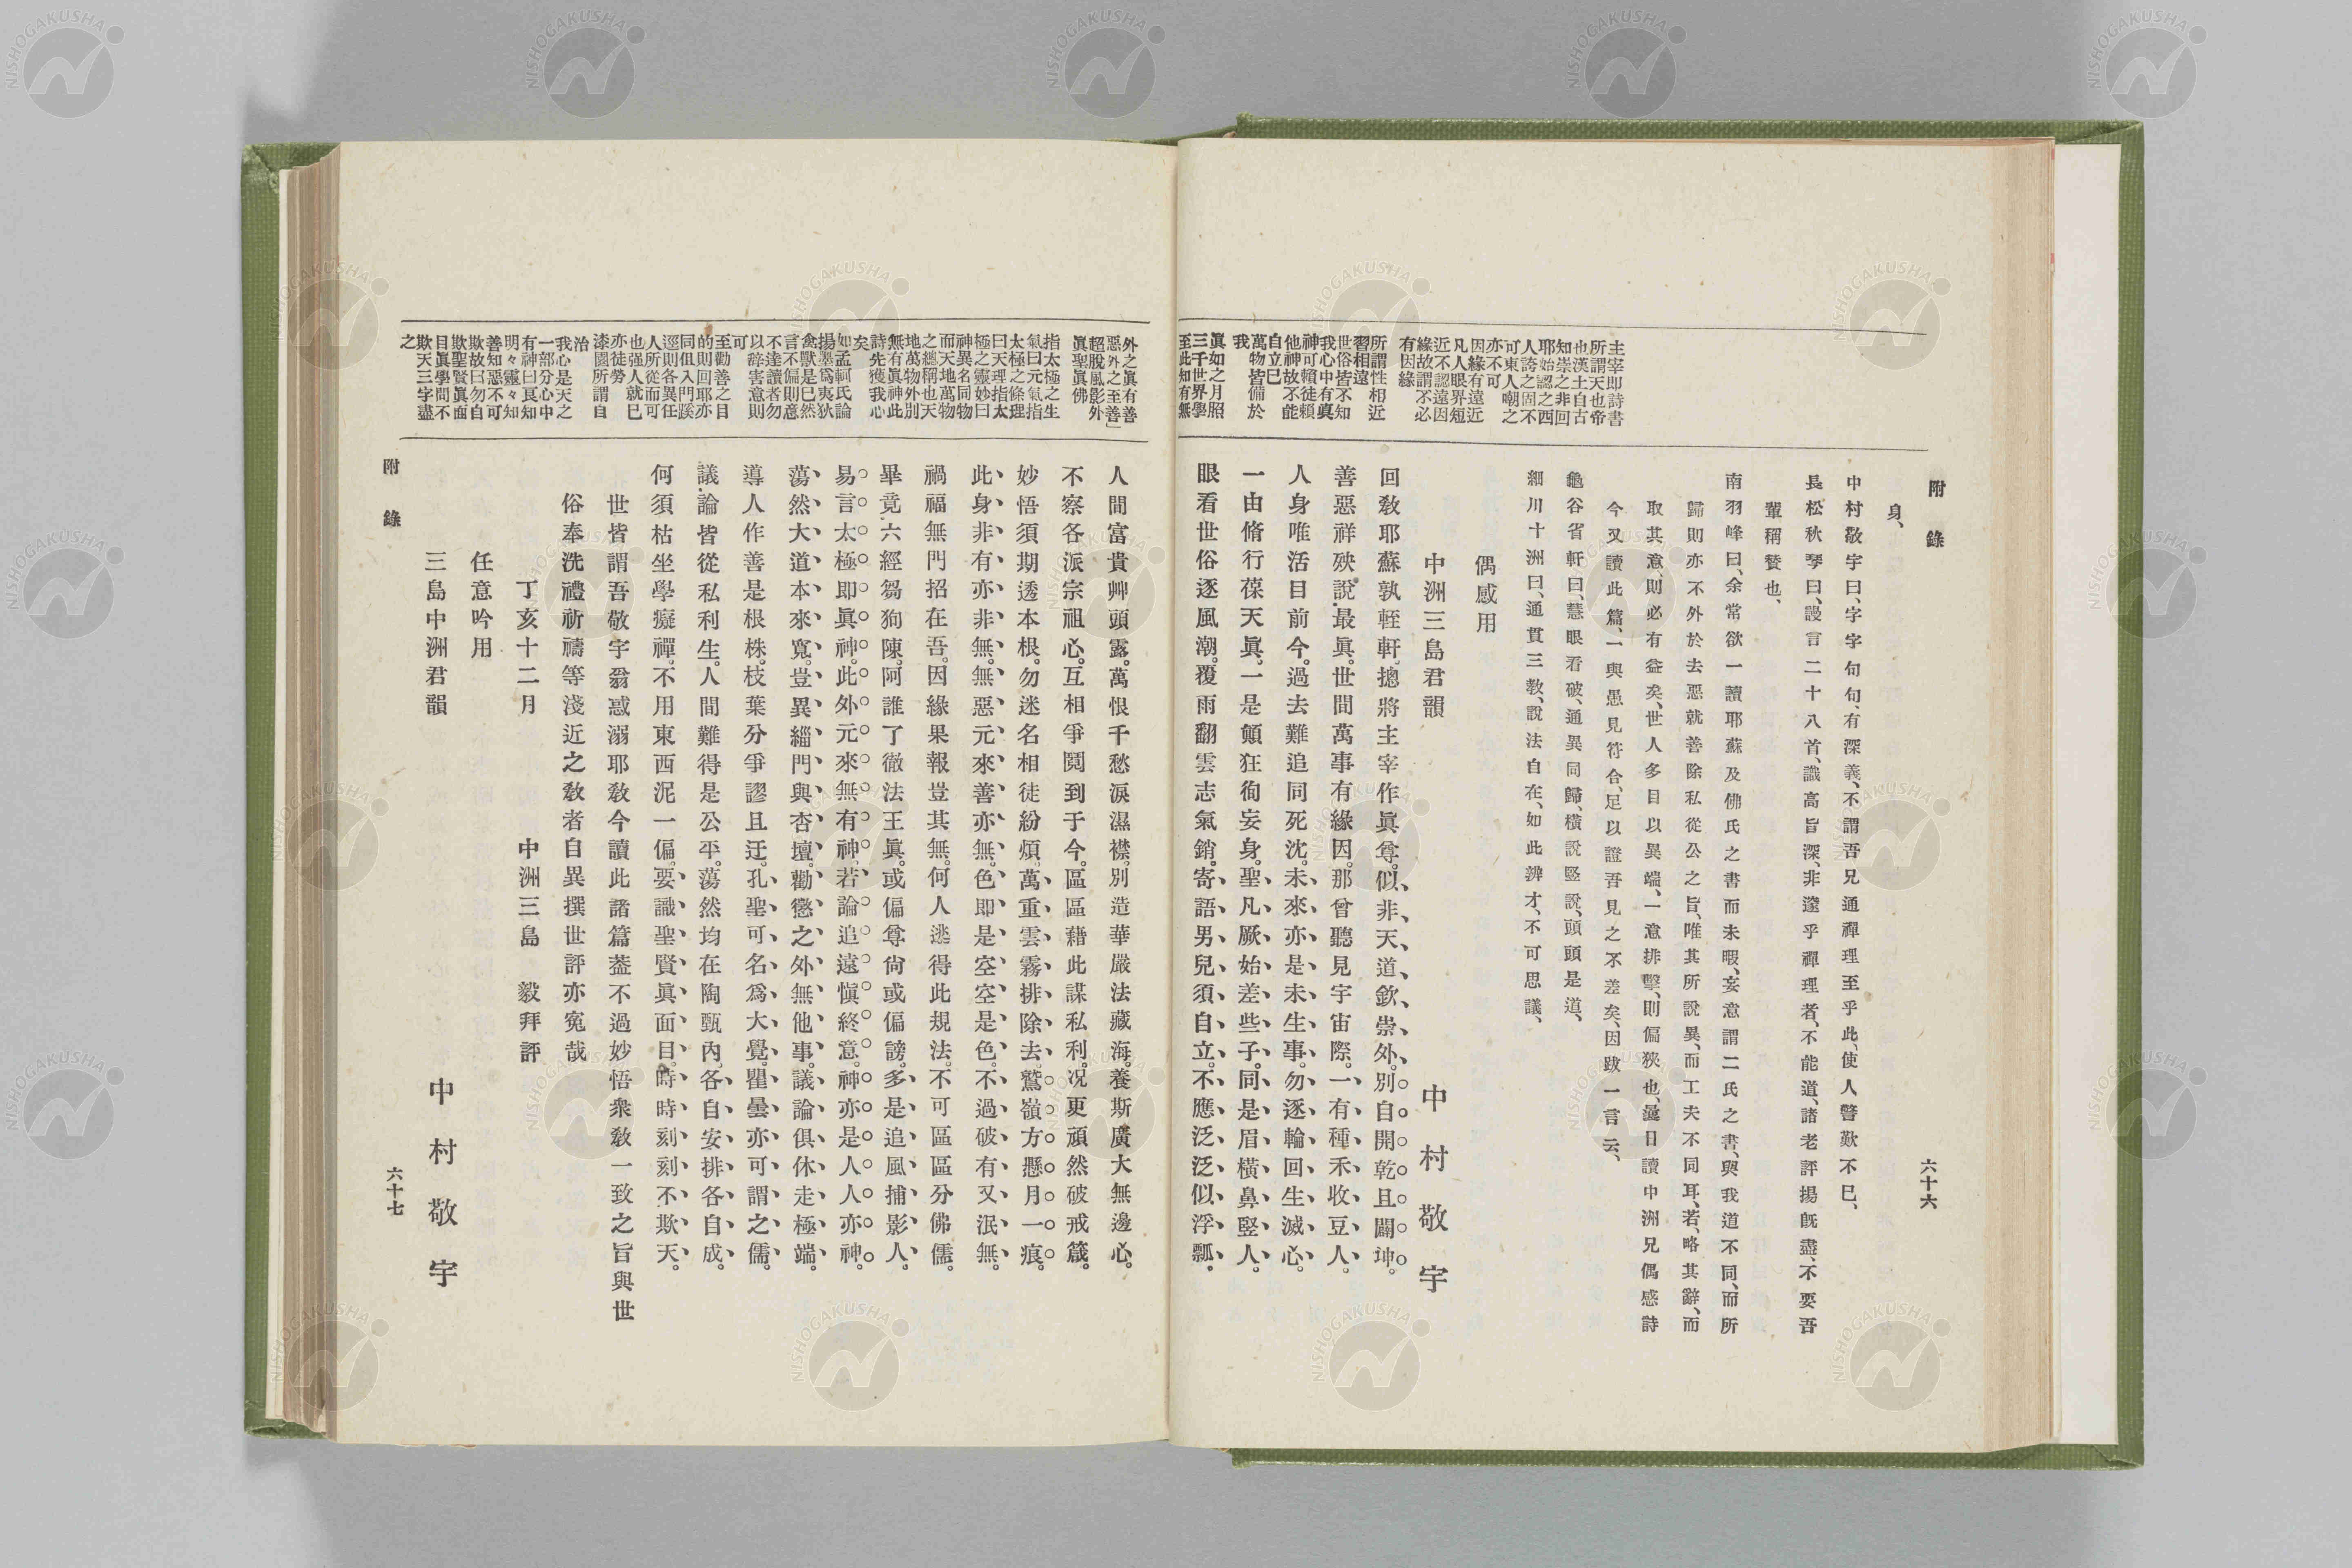 附錄
六十六
身、
中村敬宇曰、字字句句、有深義、不謂吾兄通禪理至乎此、使人警歎不已、
長松秋琴曰、謾言二十八首、識高旨深、非邃乎禪理者、不能道、諸老評揚旣盡、不要吾
輩稱贊也、
南羽峰曰、余常欲一讀耶蘇及佛氏之書而未暇、妄意謂二氏之書、與我道不同、而所
歸則亦不外於去惡就善除私從公之旨、唯其所說異、而工夫不同耳、若略其辭、而
取其意、則必有益矣、世人多目以異端、一意排擊、則偏狹也、曩日讀中洲兄偶感詩
今又讀此篇、一與愚見符合、足以證吾見之不差矣、因跋一言云、
龜谷省軒曰、慧眼看破、通異同歸、橫說竪說、頭頭是道、
細川十洲曰、通貫三敎、說法自在、如此辨才、不可思議、
偶感用
中洲三島君韻
中村敬宇
回敎耶蘇孰輊軒。摠將主宰作眞尊。似非天道欽崇外。別自開乾且闢坤。
善惡祥殃說最眞。世間萬事有緣因。那曾聽見宇宙際。一有種禾收豆人。
人身唯活目前今。過去難追同死沈。未來亦是未生事。勿逐輪回生滅心。
一由脩行葆天眞。一是顚狂徇妄身。聖凡厥始差些子。同是眉橫鼻竪人。
眼看世俗逐風潮。覆雨翻雲志氣銷。寄語男兒須自立。不應泛泛似浮瓢。
主宰即詩書
所謂天也帝
也漢土自古
知崇之非回
耶始認之西
人誇之固不
可東人嘲之
亦不可
因緣有遠近
凡人眼界短
近不認遠因
緣故謂不必
有因緣
所謂性相近
習相遠
世俗皆不知
我心中有眞
神可賴徒賴
他神故不能
自立巳
萬物皆備於
我
眞如之月照
三千世界學
至此知有無
外之眞有善
惡外之至善」
超脫風影外
眞聖眞佛
指太極之生
氣曰元氣指
太極之條理
曰天理指太
極之靈妙曰
神異名同物
而天地萬物
之總稱也天
地萬物外別
無有眞神此
詩先獲我心
矣
如孟軻氏論
揚墨爲夷狄
禽獸是巳然
言不偏則意
不達讀者勿
以辭害意則
可
至勸善之目
的則回耶亦
同但入門蹊
逕則各異任
人所從而可
也强人就巳
亦徒勞
漆園所謂自
治
我心是天之
一部分心中
有神曰良知
明々靈々知
善知惡不可
欺故曰勿自
欺聖賢眞面
目眞學問不
欺天三字盡
之
人間富貴艸頭露。萬恨千愁淚濕襟。別造華嚴法藏海。養斯廣大無邊心。
不察各派宗祖心。互相爭鬩到于今。區區藉此謀私利。况更頑然破戒箴。
妙悟須期透本根。勿迷名相徒紛煩。萬重雲霧排除去。鷲嶺方懸月一痕。
此身非有亦非無。無惡元來善亦無。色即是空空是色。不過破有又泯無。
禍福無門招在吾。因緣果報豈其無。何人逃得此規法。不可區區分佛儒。
畢竟六經芻狗陳。阿誰了徹法王眞。或偏尊尙或偏謗。多是追風捕影人。
易言太極即眞神。此外元來無有神。若論追遠愼終意。神亦是人人亦神。
蕩然大道本來寬。豈異緇門與杏壇。勸懲之外無他事。議論俱休走極端。
導人作善是根株。枝葉分爭謬且迂。孔聖可名爲大覺。瞿曇亦可謂之儒。
議論皆從私利生。人間難得是公平。蕩然均在陶甄內。各自安排各自成。
何須枯坐學癡禪。不用東西泥一偏。要識聖賢眞面目。時時刻刻不欺天。
世皆謂吾敬宇翁惑溺耶敎今讀此諸篇葢不過妙悟衆敎一致之旨與世
俗奉洗禮祈禱等淺近之敎者自異撰世評亦寃哉
丁亥十二月　中洲三島　毅拜評
任意吟用
三島中洲君韻
中村敬宇
附錄
六十七